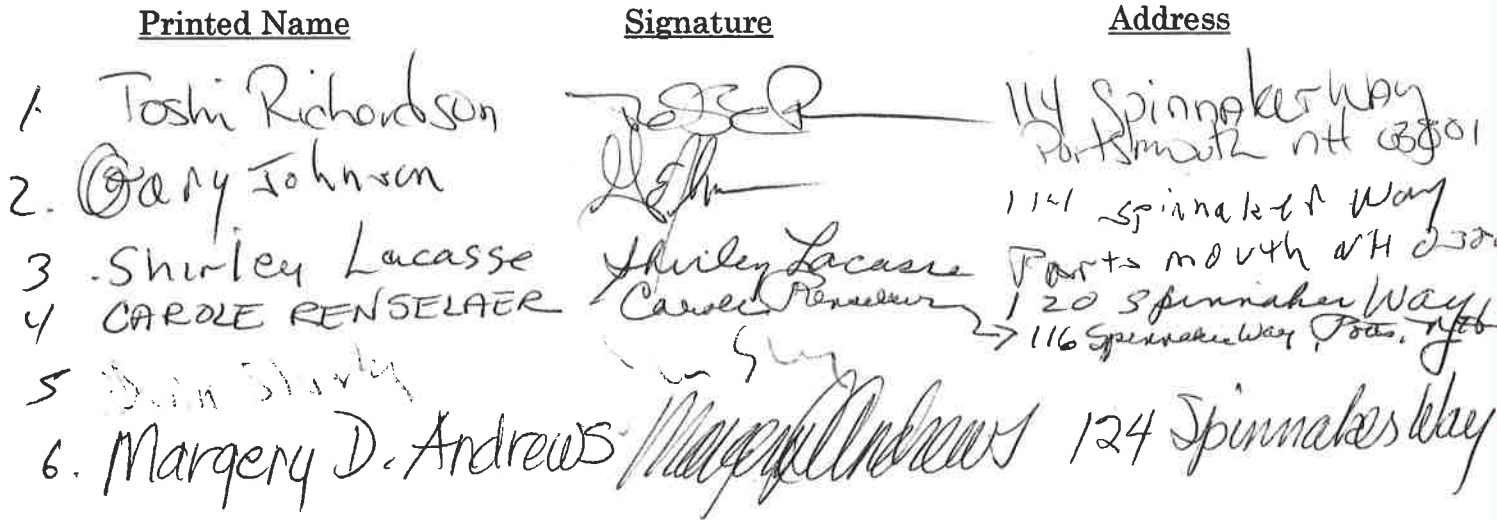 Printed Name Signature Address
1. Toshi Richardson 114 Spinnaker Way
Portsmouth NH 03801
2. Gary Johnson 114 Spinnaker Way
Portsmouth NH
3. Shirley Lacasse Shirley Lacasse 120 Spinnaker Way
4 CAROLE RENSELAER Carole Renselaer → 116 Spinnaker Way, Ports, NH
5
6. Margery D. Andrews Margery D Andrews 124 Spinnaker Way